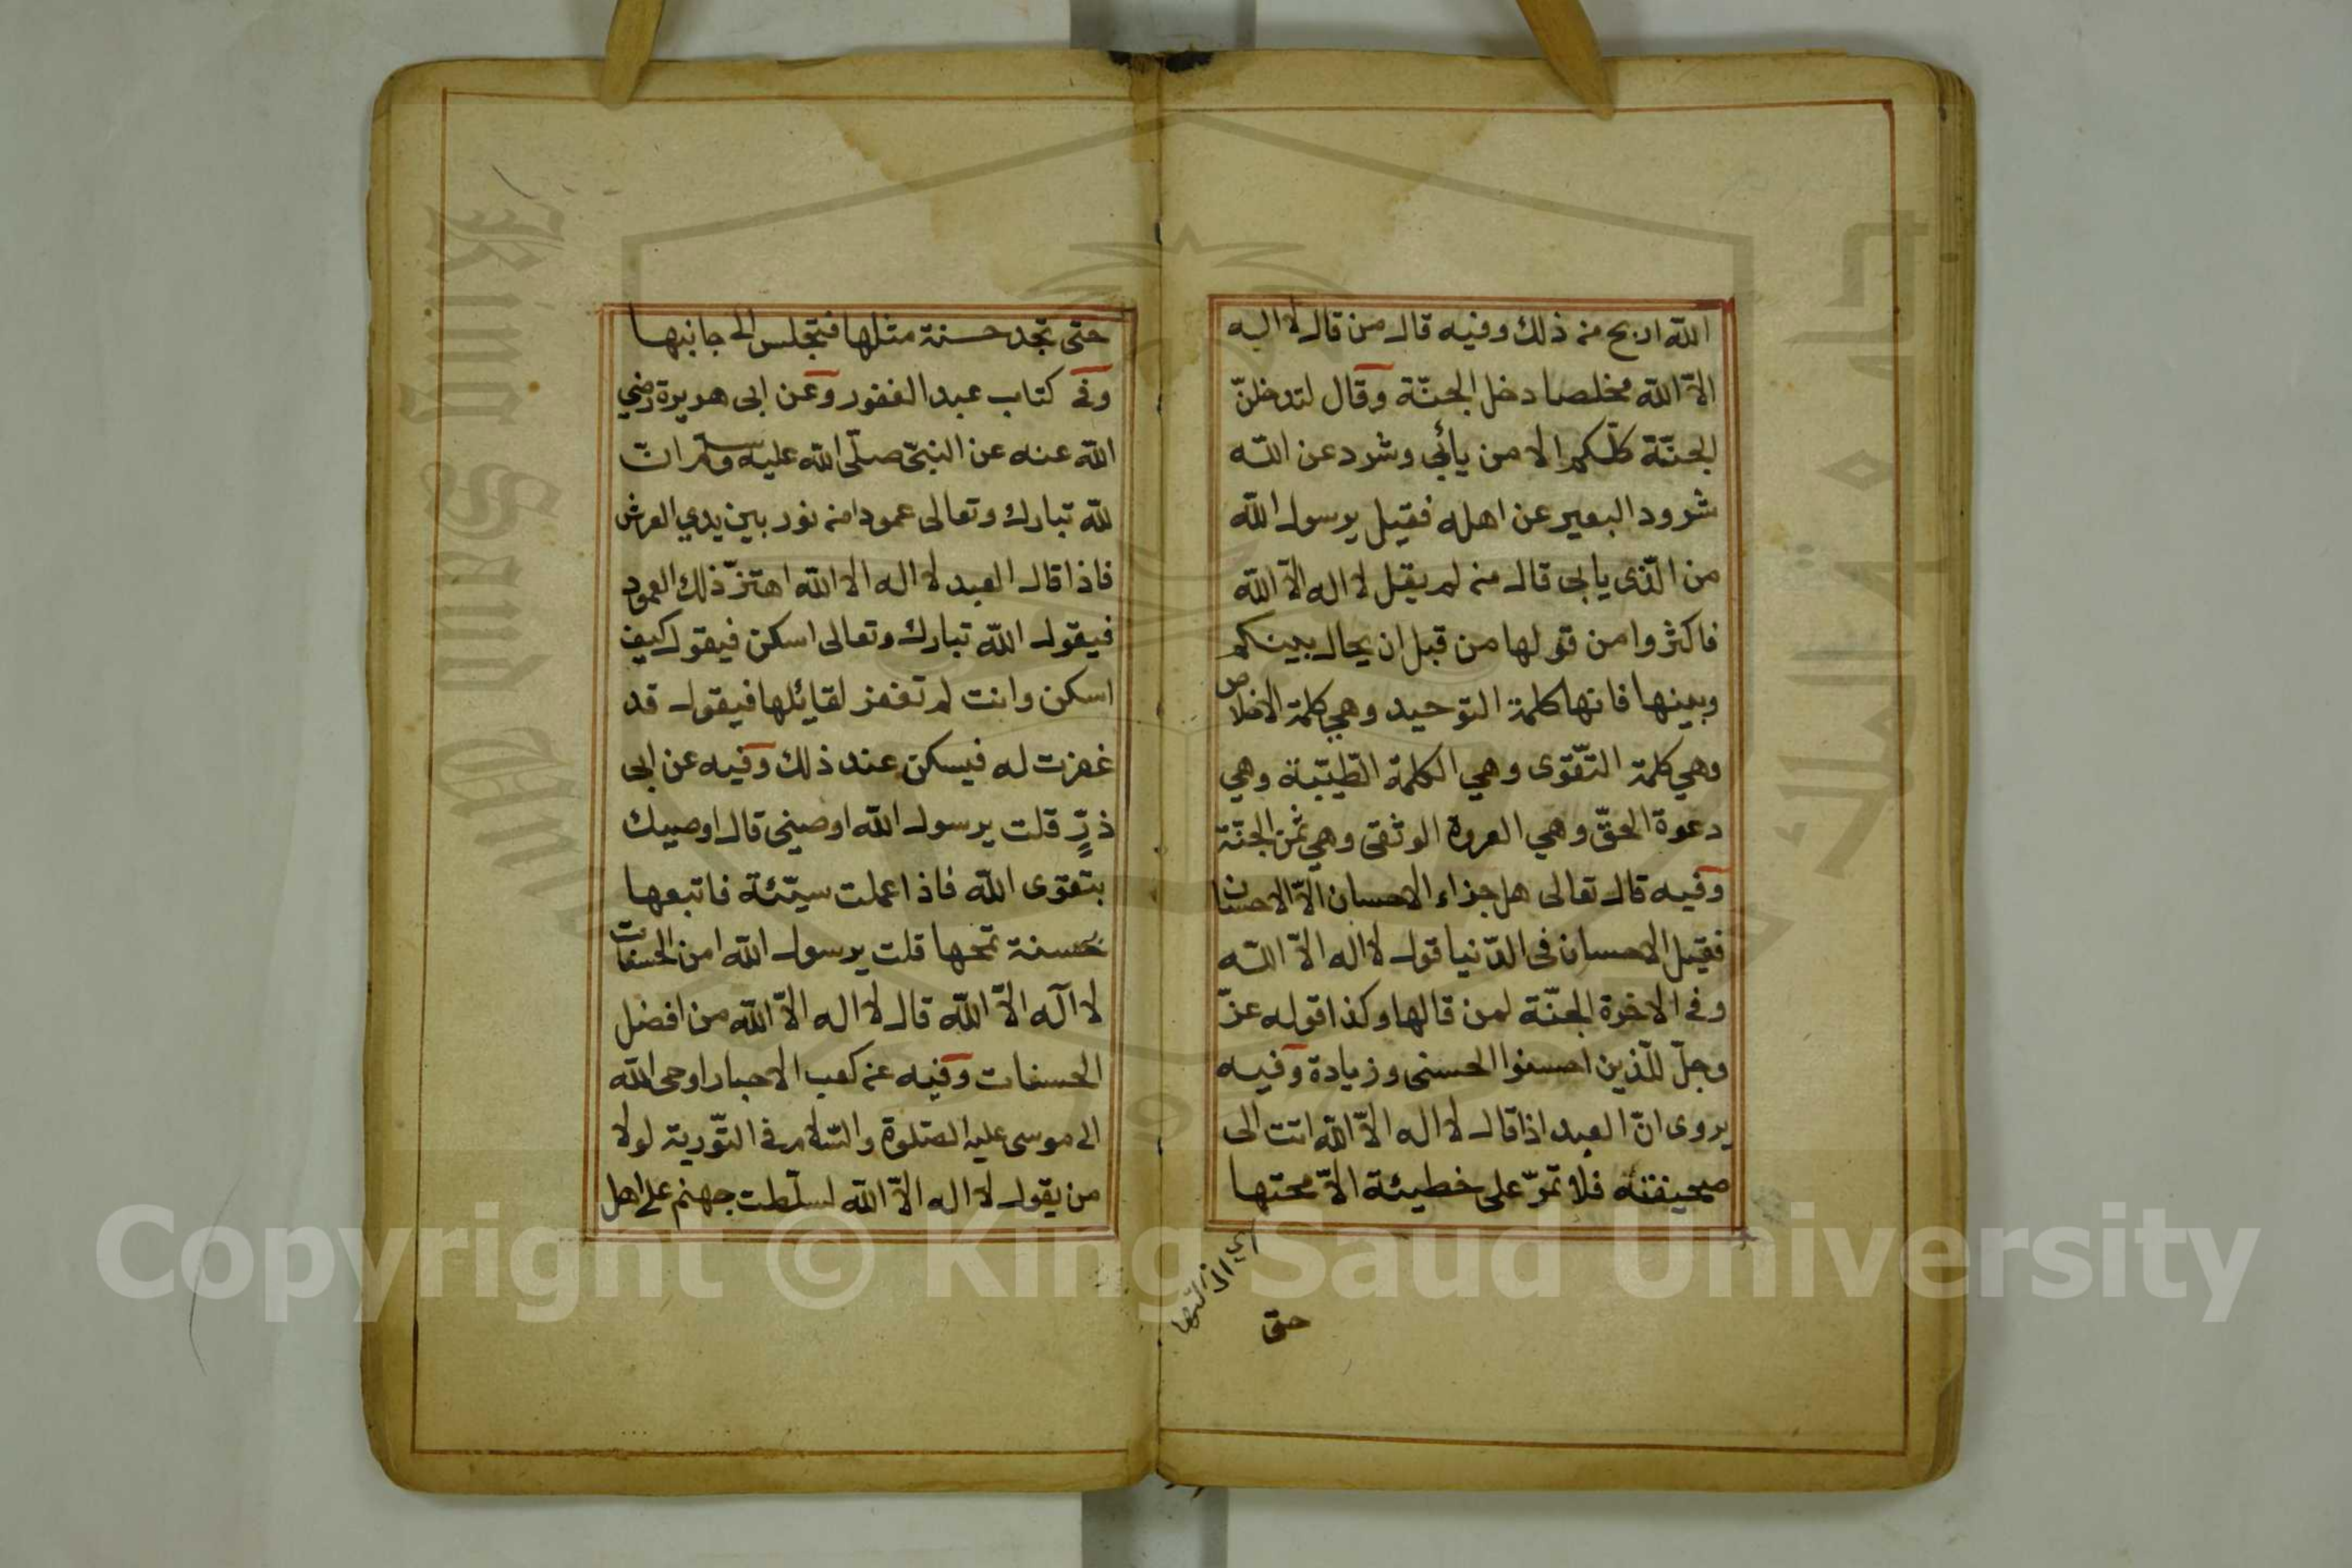 الله اربح من ذلك وفيه قال من قال لا اله
الاّ الله مخلصا دخل الجنّة وقال لتدخلنّ
الجنّة كلّكم الا من يأبى وشرد عن الله
شرود البعير عن اهله فقيل يرسول الله
من الّذى يابى قال من لم يقل لا اله الاّ الله
فاكثروا من قولها من قبل ان يحال بينكم
وبينها فانها كلمة التوحيد وهي كلمة الاخلاص
وهي كلمة التّقوى وهي الكلمة الطّيّبة وهي
دعوة الحقّ وهي العروة الوثقى وهي ثمن الجنّة
وفيه قال تعالى هل جزاء الاحسان الاّ الاحسان
فقيل الاحسان فى الدّنيا قول لا اله الاّ الله
وفى الاخرة الجنّة لمن قالها وكذا قوله عزّ
وجلّ للّذين احسنوا الحسنى وزيادة وفيه
يروى انّ العبد اذا قال لا اله الاّ الله اتت الى
صحيفته فلا تمرّ على خطيئة الاّ محتها
حتى
حتى تجد حسنة مثلها فتجلس الى جانبها
وفى كتاب عبد الغفور وعن ابى هريرة رضي
الله عنه عن النبىّ صلّى الله عليه وسلم انّ
لله تبارك وتعالى عمودا من نور بين يدي العرش
فاذا قال العبد لا اله الا الله اهتزّ ذلك العمود
فيقول الله تبارك وتعالى اسكن فيقول كيف
اسكن وانت لم تغفر لقائلها فيقول قد
غفرت له فيسكن عند ذلك وفيه عن ابى
ذرّ قلت يرسول الله اوصينى قال اوصيك
بتقوى الله فاذا عملت سيّئة فاتبعها
بحسنة تمحها قلت يرسول الله امن الحسنات
لا اله الاّ الله قال لا اله الاّ الله من افضل
الحسنات وفيه عن كعب الاحبار اوحى الله
الى موسى عليه الصّلوة والسّلام فى التّورية لولا
من يقول لا اله الاّ الله لسلّطت جهنم على اهل
King Saud University
Copyright © King Saud University